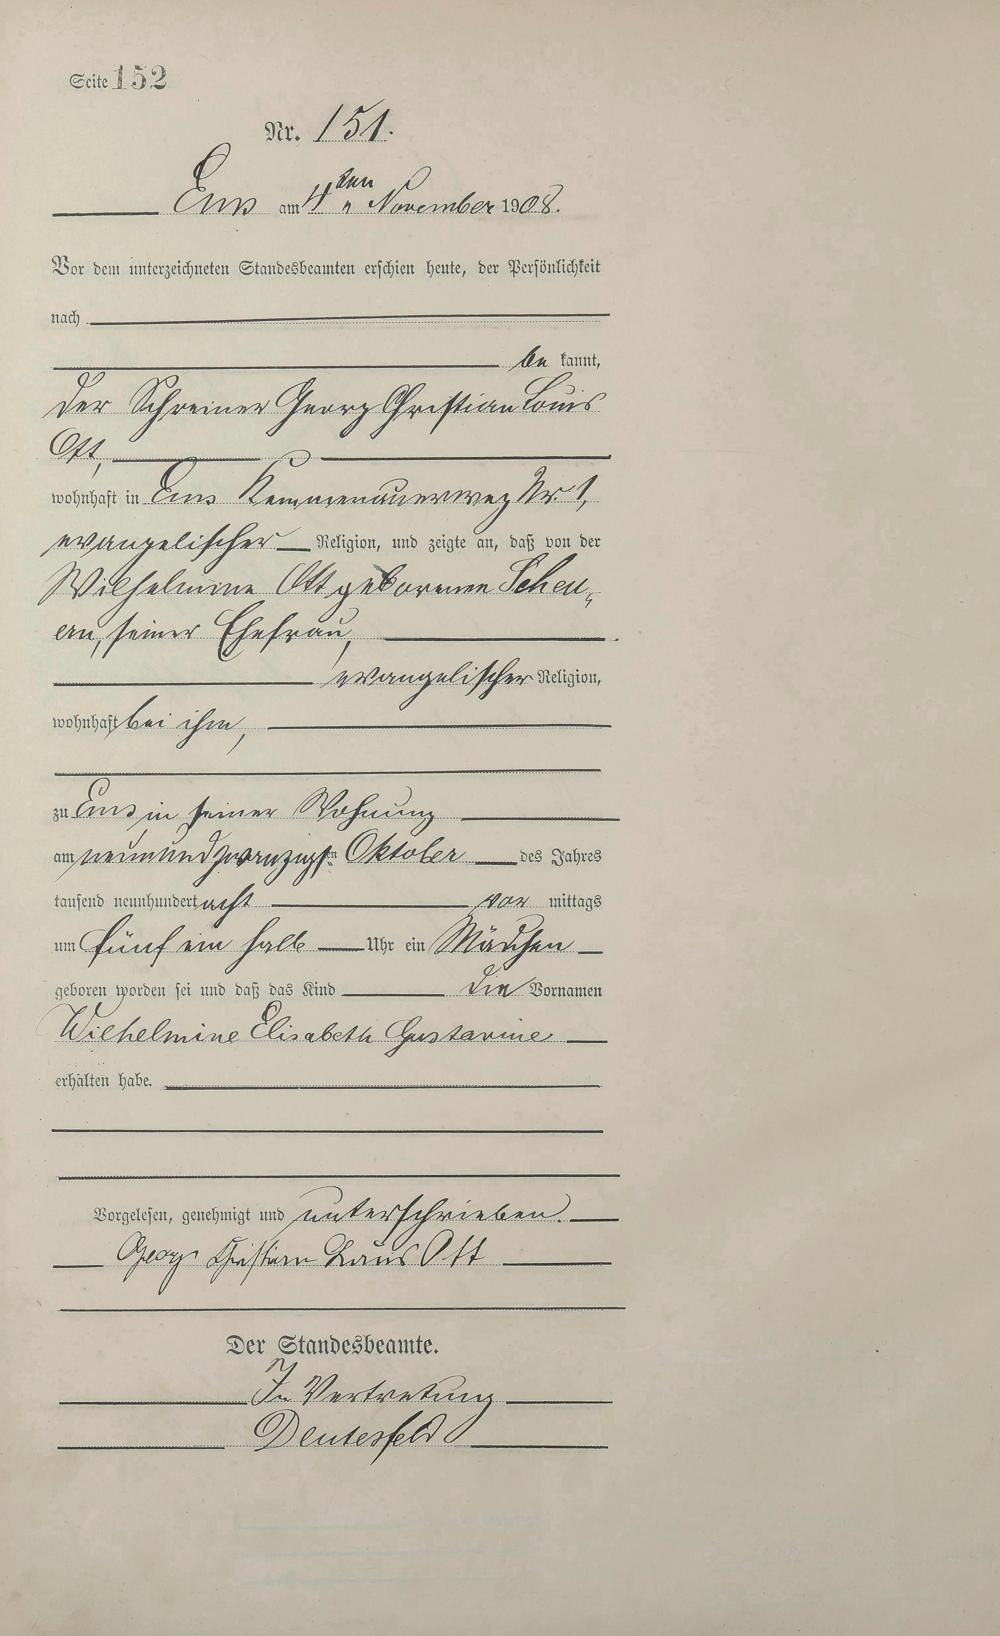 Seite 152
Nr. 151.
Ems am 4ten November 1908.
Vor dem unterzeichneten Standesbeamten erschien heute, der Persönlichkeit
nach
be kannt,
der Schreiner Georg Christian Louis
Ott,
wohnhaft in Ems Kemmenauerweg Nr. 1,
evangelischer Religion, und zeigte an, daß von der
Wilhelmine Ott geborenen Scheu„
ern, seiner Ehefrau,
evangelischer Religion,
wohnhaft bei ihm,
zu Ems in seiner Wohnung
am neunundzwanzigsten Oktober des Jahres
tausend neunhundert acht vor mittags
um fünf ein halb Uhr ein Mädchen
geboren worden sei und daß das Kind die Vornamen
Wilhelmine Elisabeth Gustavine
erhalten habe.
Vorgelesen, genehmigt und unterschrieben.
Georg Christian Louis Ott
Der Standesbeamte.
In Vertretung